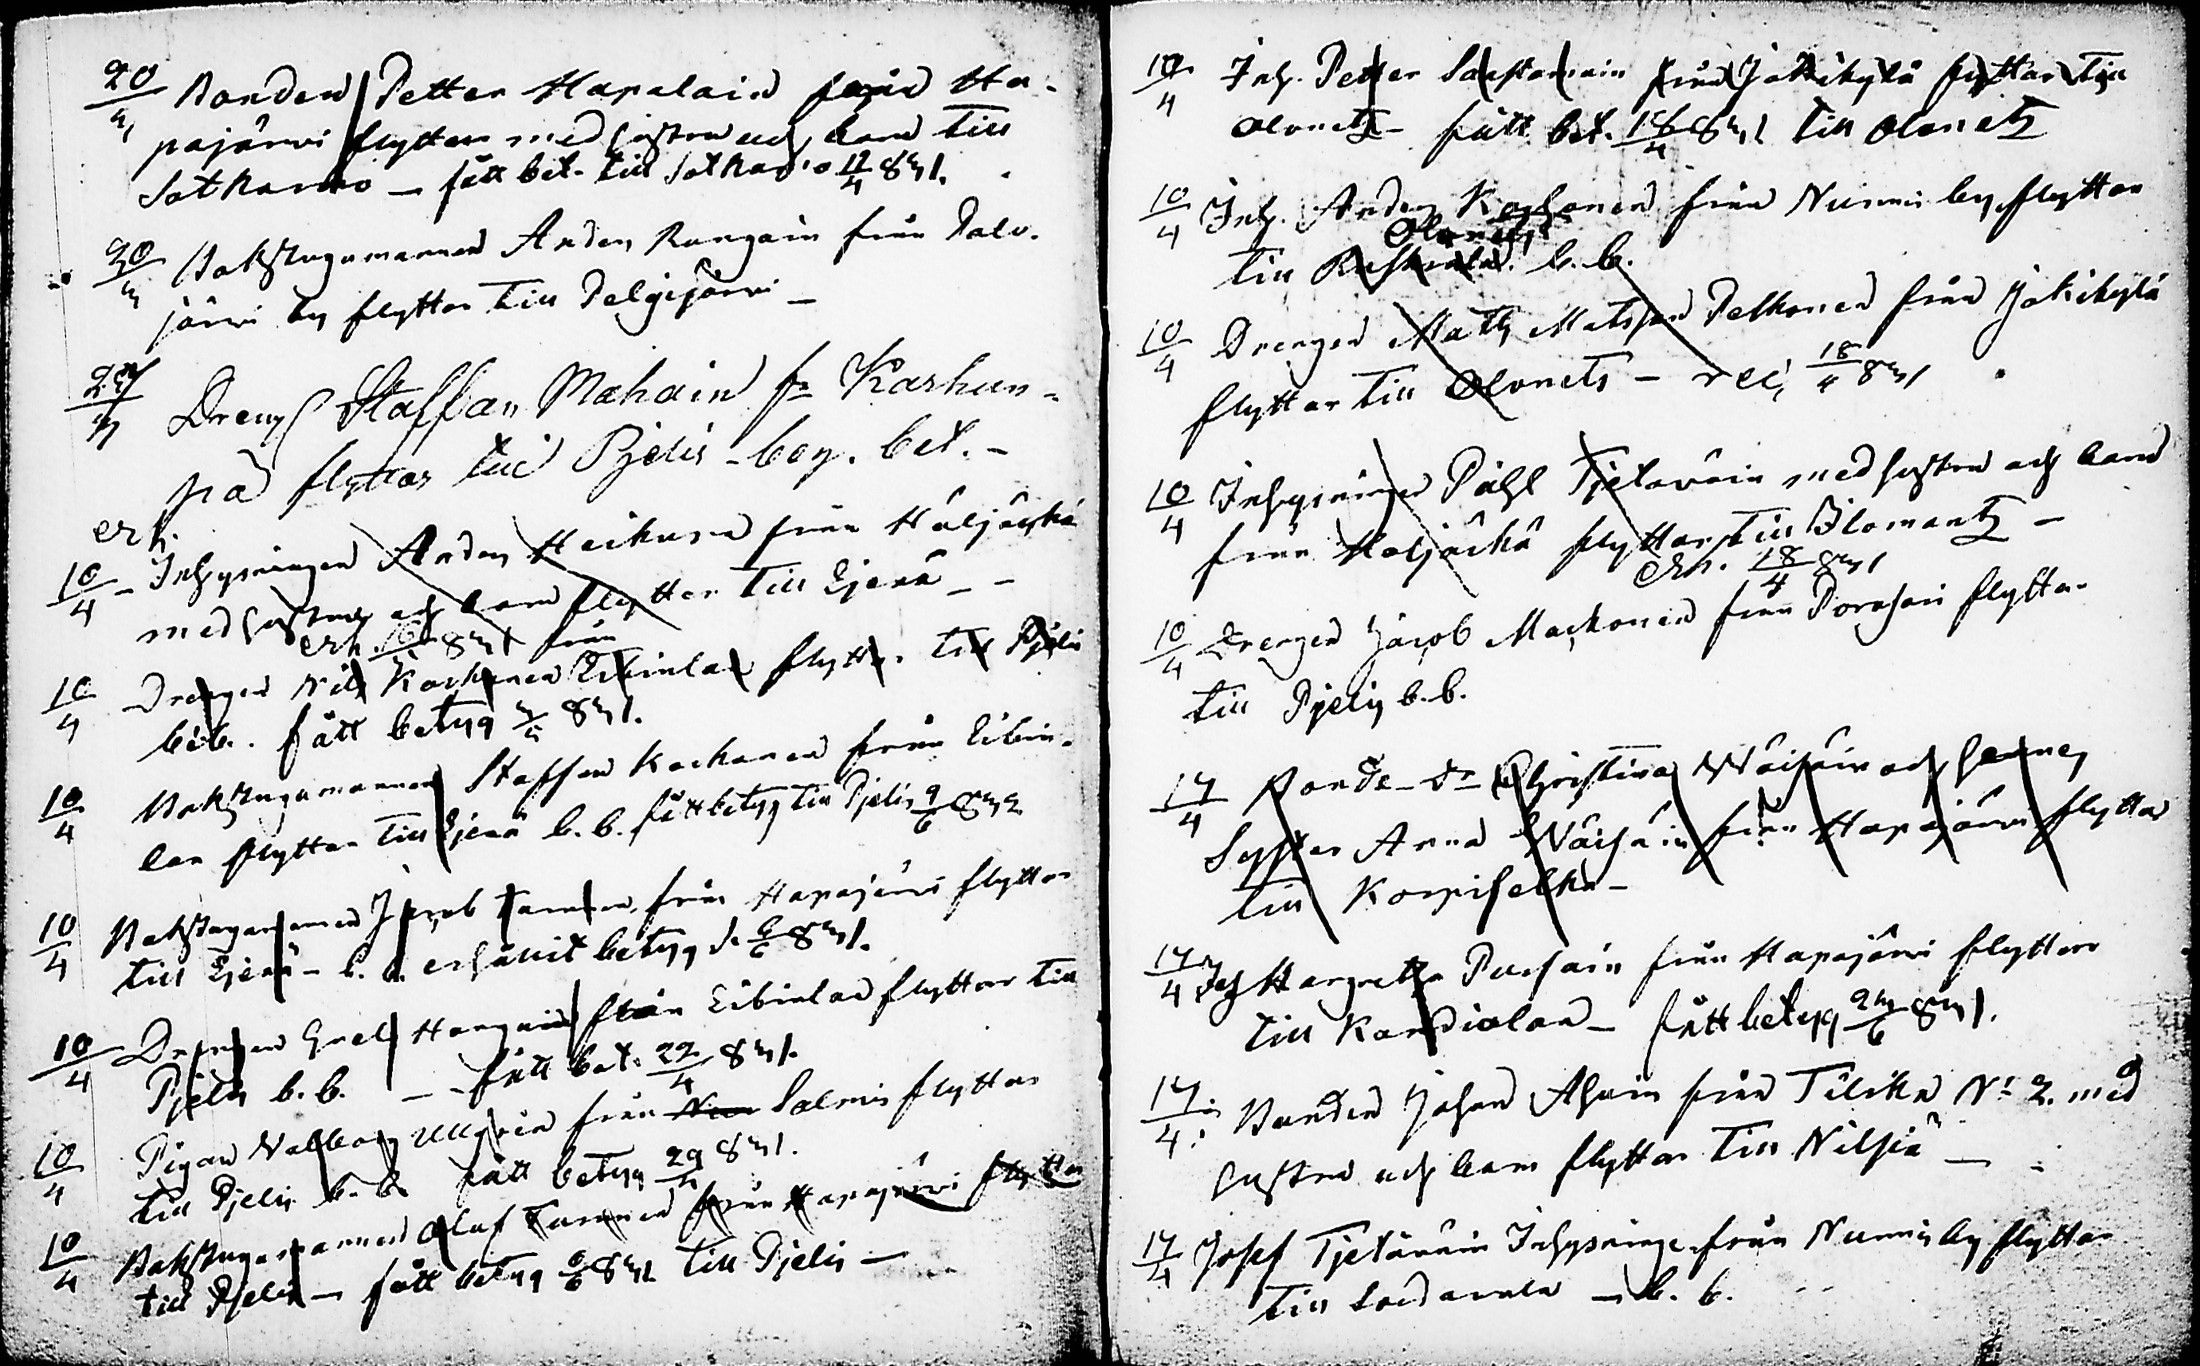 20/3 Bonden Petter Hapalain från Ha-
pajärvi flyttar med hustru och barn till
Sotkamo - fått bet. till Sotkamo 12/4 831.
30/3 Backstugumannen Anders Rungain från Palo-
järvi by flyttar till Pelgijärvi -
27/3 Dreng Staffan Mahoin fr Karhun-
pä flyttar till Pjelis - beg. bet. -
erh.
10/4 - Inhysningen Anders Heikura från Höljäckä
med hustru och barn flyttar till Ejenä - -
erh. 831
10/4 Drengen Nils Kockonen från Eibinlax flyttar till Pjelis
b. b. fått betyg 831.
10/4 Backstugumannen Staffan Kockonen från Eibin-
lax flyttar till Ejenä b. b. fått betyg till Pjelis 9/6 832
10/4 Backstugumannen Jacob från Hapajärvi flyttar
till Ejenä - b. b. erhållit betyg d. 6/6 831.
10/4 Drengen Grels från Eibinlax flyttar till
Pjelis b. b. - - fått bet. 22/4 831.
10/4 Pigan Valborg från Salmis flyttar
till Pjelis b. b. fått betyg 29/4 831.
10/4 Backstugumannen Olof Turunen från Hapajärvi flyttar
till Pjelis - fått betyg 6/6 831 till Pjelis -
10/4 Inh. Petter från Jokikylä flyttar till
Olonetz - fått bet. 18/4 831 till Olonetz
10/4 Inh. Anders Kockonen från Nurmis by flyttar
Olonetz
till Ruskeala b. b.
10/4 Drengen Matts Matsson Pelkonen från Jokikylä
flyttar till Olonets - rec. 18/4 831
10/4 Inhysningen Påhl Tjetäväin med hustru och barn
från Höljäckä flyttar till Ilomantz -
erh. 18/4 831
10/4 Drengen Jacob Mackonen från Porosari flyttar
till Pjelis b. b.
17/4 Bonde-dr Christina Wäisäin och hennes
Syster Anna Wäisäin från Hapajärvi flyttar
till Korpiselkä -
17/4 Margretha Pursiain från Hapajärvi flyttar
till Kondiolax - fått betyg 23/6 831.
17/4 Bonden Johan Ahoin från Tilika No 2. med
hustru och barn flyttar till Nilsiä -
17/4 Josef Tjetäväin Inhysninge från Nurmis by flyttar
till Sordavala - b. b.